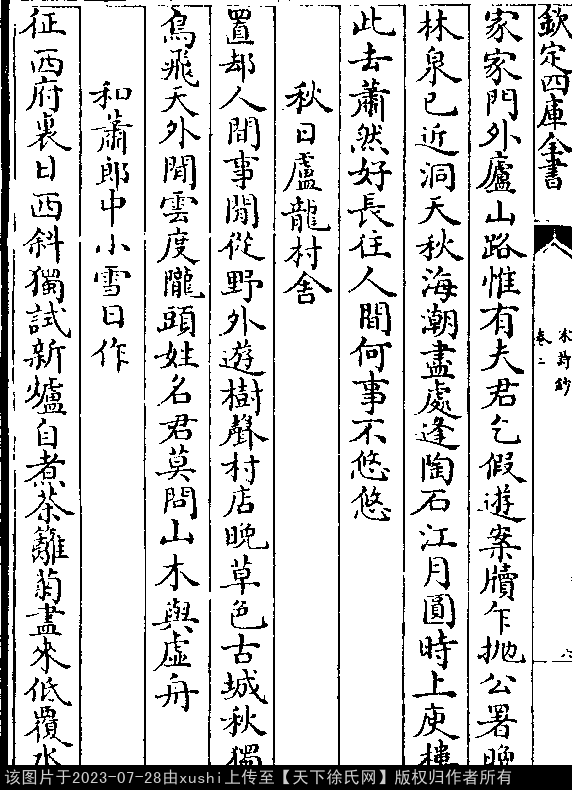 欽定四庫全書
宋詩鈔
卷二
六
家家門外廬山路惟有夫君乞假遊案牘乍拋公署晚
林泉已近洞天秋海潮盡處逢陶石江月圓時上庾樓
此去蕭然好長往人間何事不悠悠
秋日盧龍村舍
置却人間事閒從野外遊樹聲村店晚草色古城秋獨
鳥飛天外閒雲度隴頭姓名君莫問山木與虛舟
和蕭郎中小雪日作
征西府裏日西斜獨試新爐自煮茶籬菊盡來低覆水
该图片于2023-07-28由xushi上传至【天下徐氏网】版权归作者所有